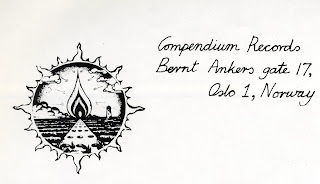 Compendium Records
Bernt Ankers gate 17,
Oslo 1, Norway